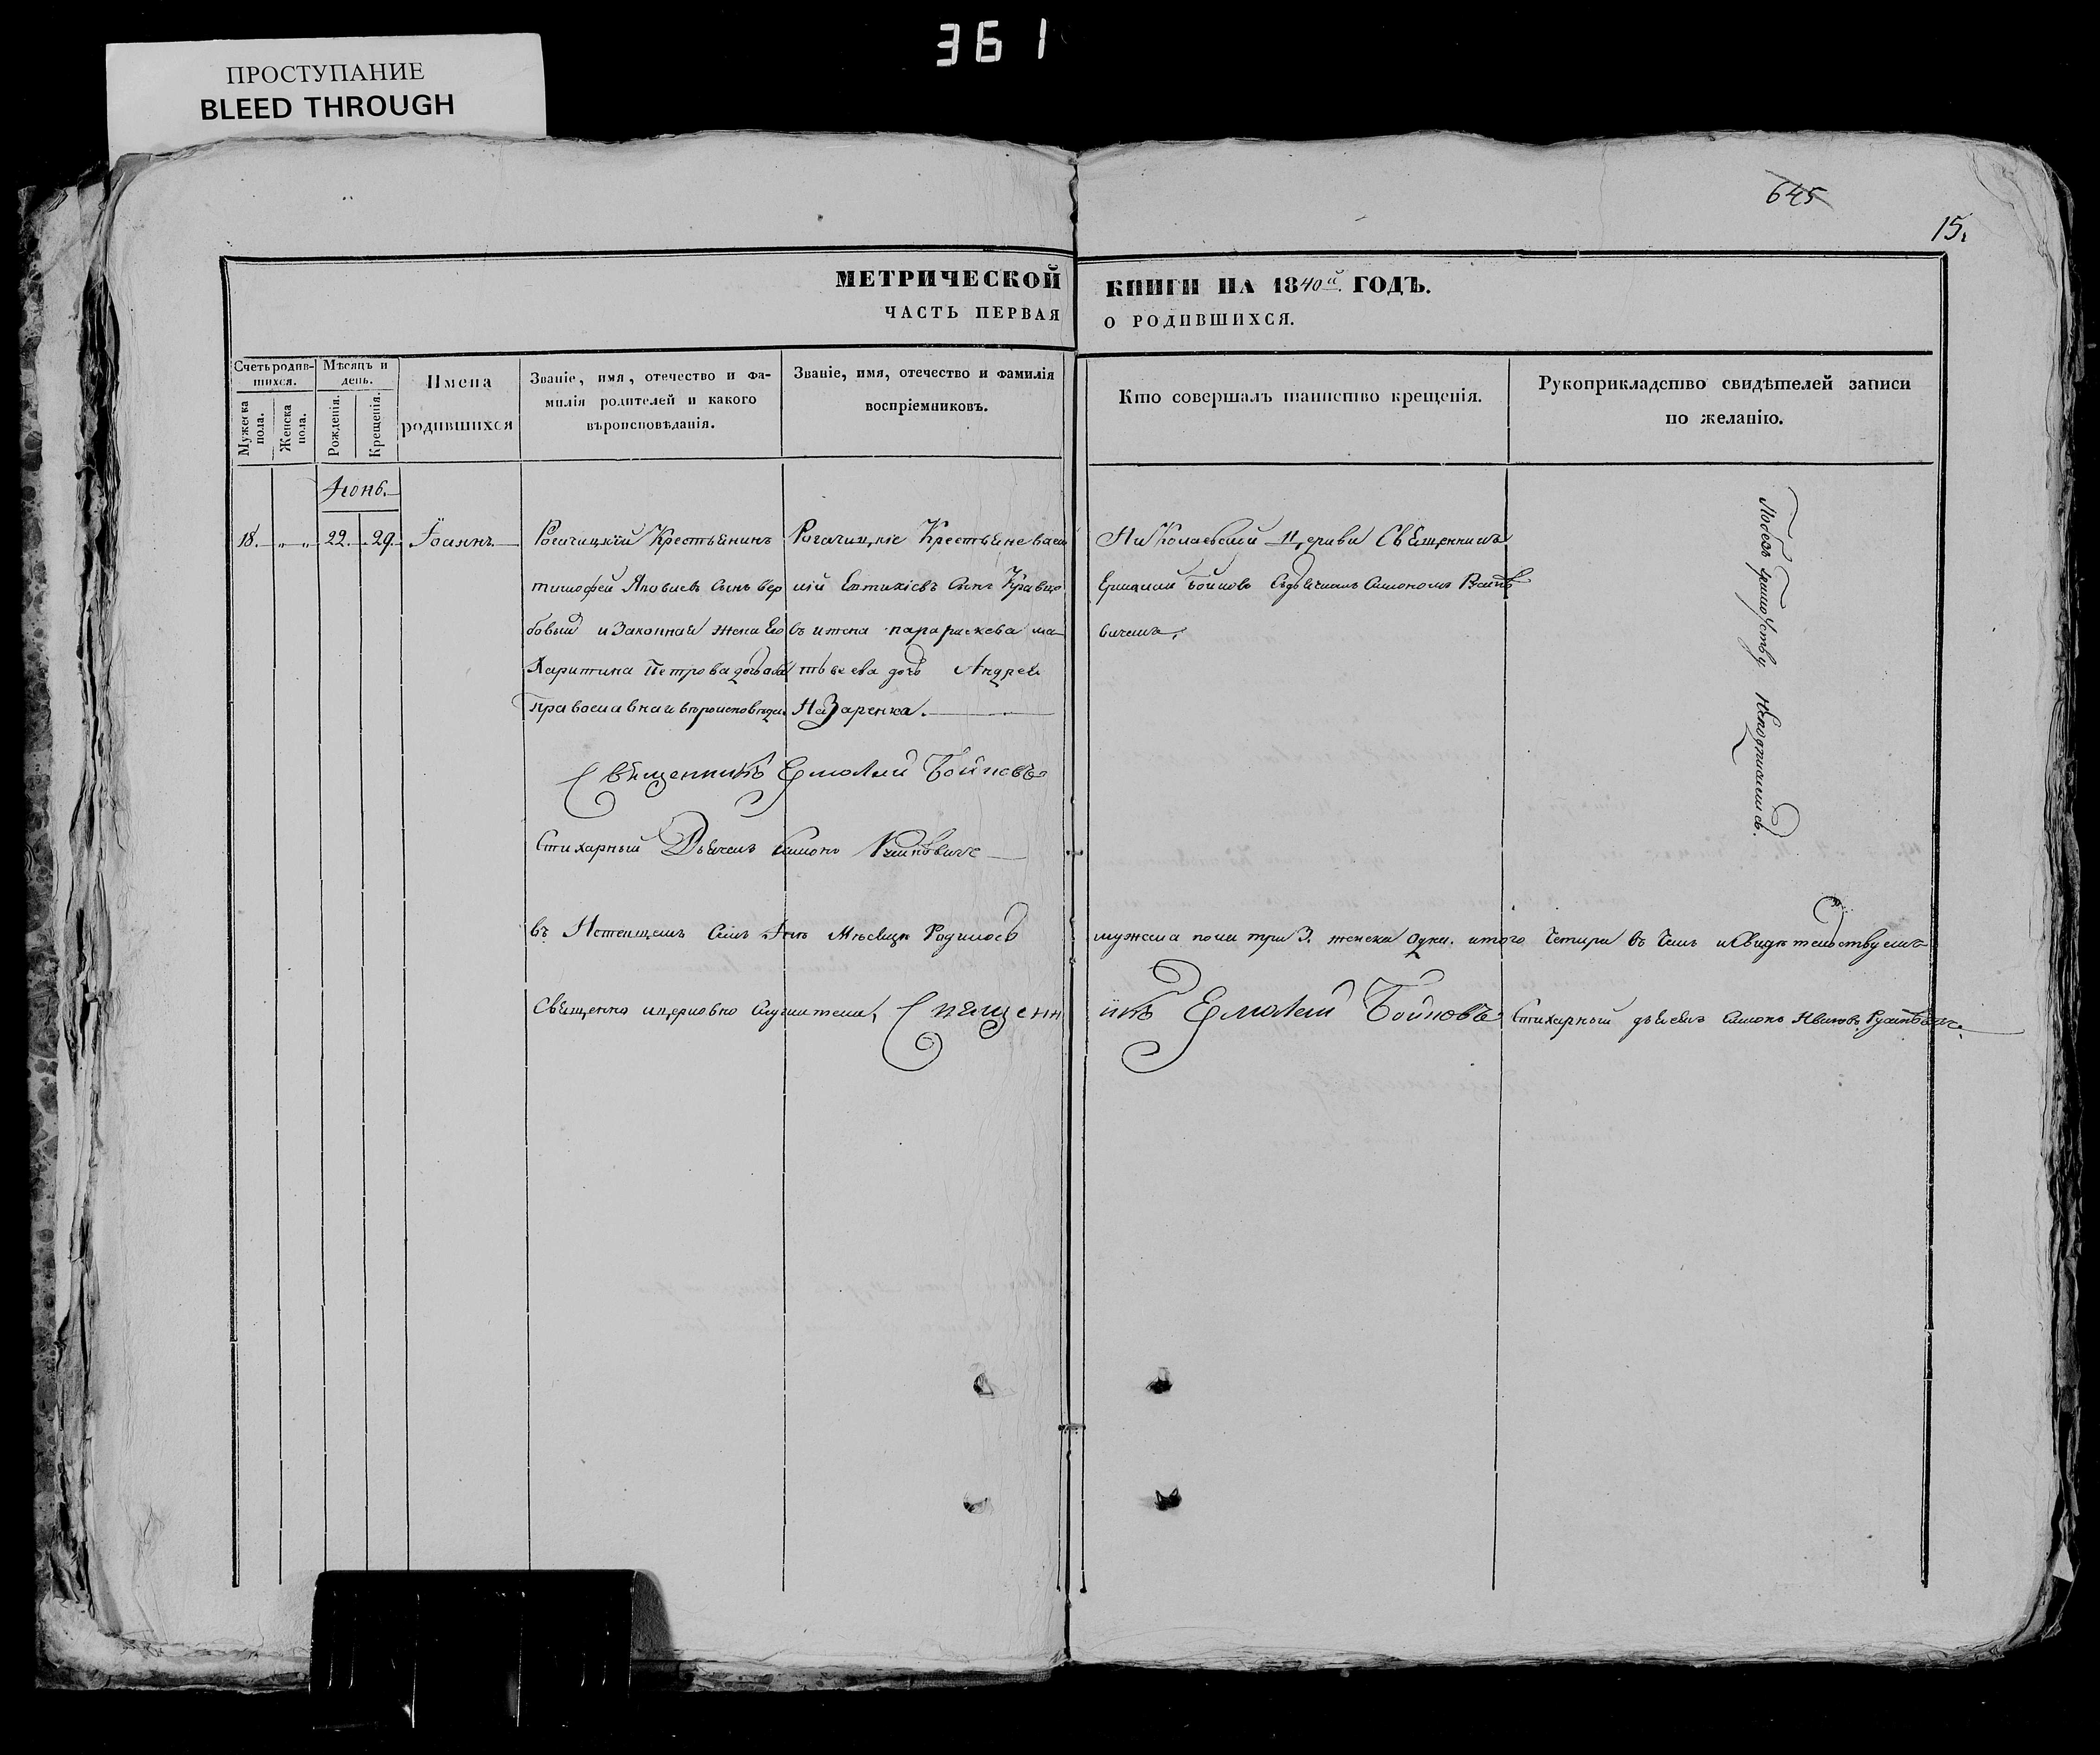 361
ПРОСТУПАНИЕ
BLEED THROUGH
645
15.
МЕТРИЧЕСКОЙ КНИГИ НА 1840й ГОДЪ.
ЧАСТЬ ПЕРВАЯ О РОДИВШИХСЯ.
Счетъ родившихся.
Мужеска пола.
Женска пола.
Мѣсяцъ и день.
Рожденія.
Крещенія.
Имена родившихся
Званіе, имя, отечество и фа-
милія родителей и какого
вѣроисповѣданія.
Званіе, имя, отечество и фамилія
воспріемниковъ.
Кто совершалъ таинство крещенія.
Рукоприкладство свидѣтелей записи
по желанію.
Іюнь.
18. „ „ 22. 29. Іоаннъ.
Рогачицкій Крестьянинъ
тимофей Яковлевъ Сынъ Вер
бовый и Законная жена Его
Харитина Петрова дочь оба
православнаго вѣроисповѣдан.
Рогачицкіе Крестьяне Васи
лій Евтихіевъ Сынъ Кравцо
въ и жена параскева ма
твѣева дочь Андрея
Назаренка.
Николаевской Церкви Священникъ
Ермолай Бойновъ Съ дьячкомъ Симономъ
вичемъ.
неподписались.
Священникъ Ермолай Бойновъ
Стихарный Дьячекъ Симонъ
въ Истекшемъ Сим Іюнѣ Мѣсяцѣ Родилось мужеска пола три 3. женска одна. итого четыри въ чемъ и Свидѣтельствуемъ
Священно и церковно служители, Священникъ Ермолай Бойновъ Стихарный дьячекъ Симонъ